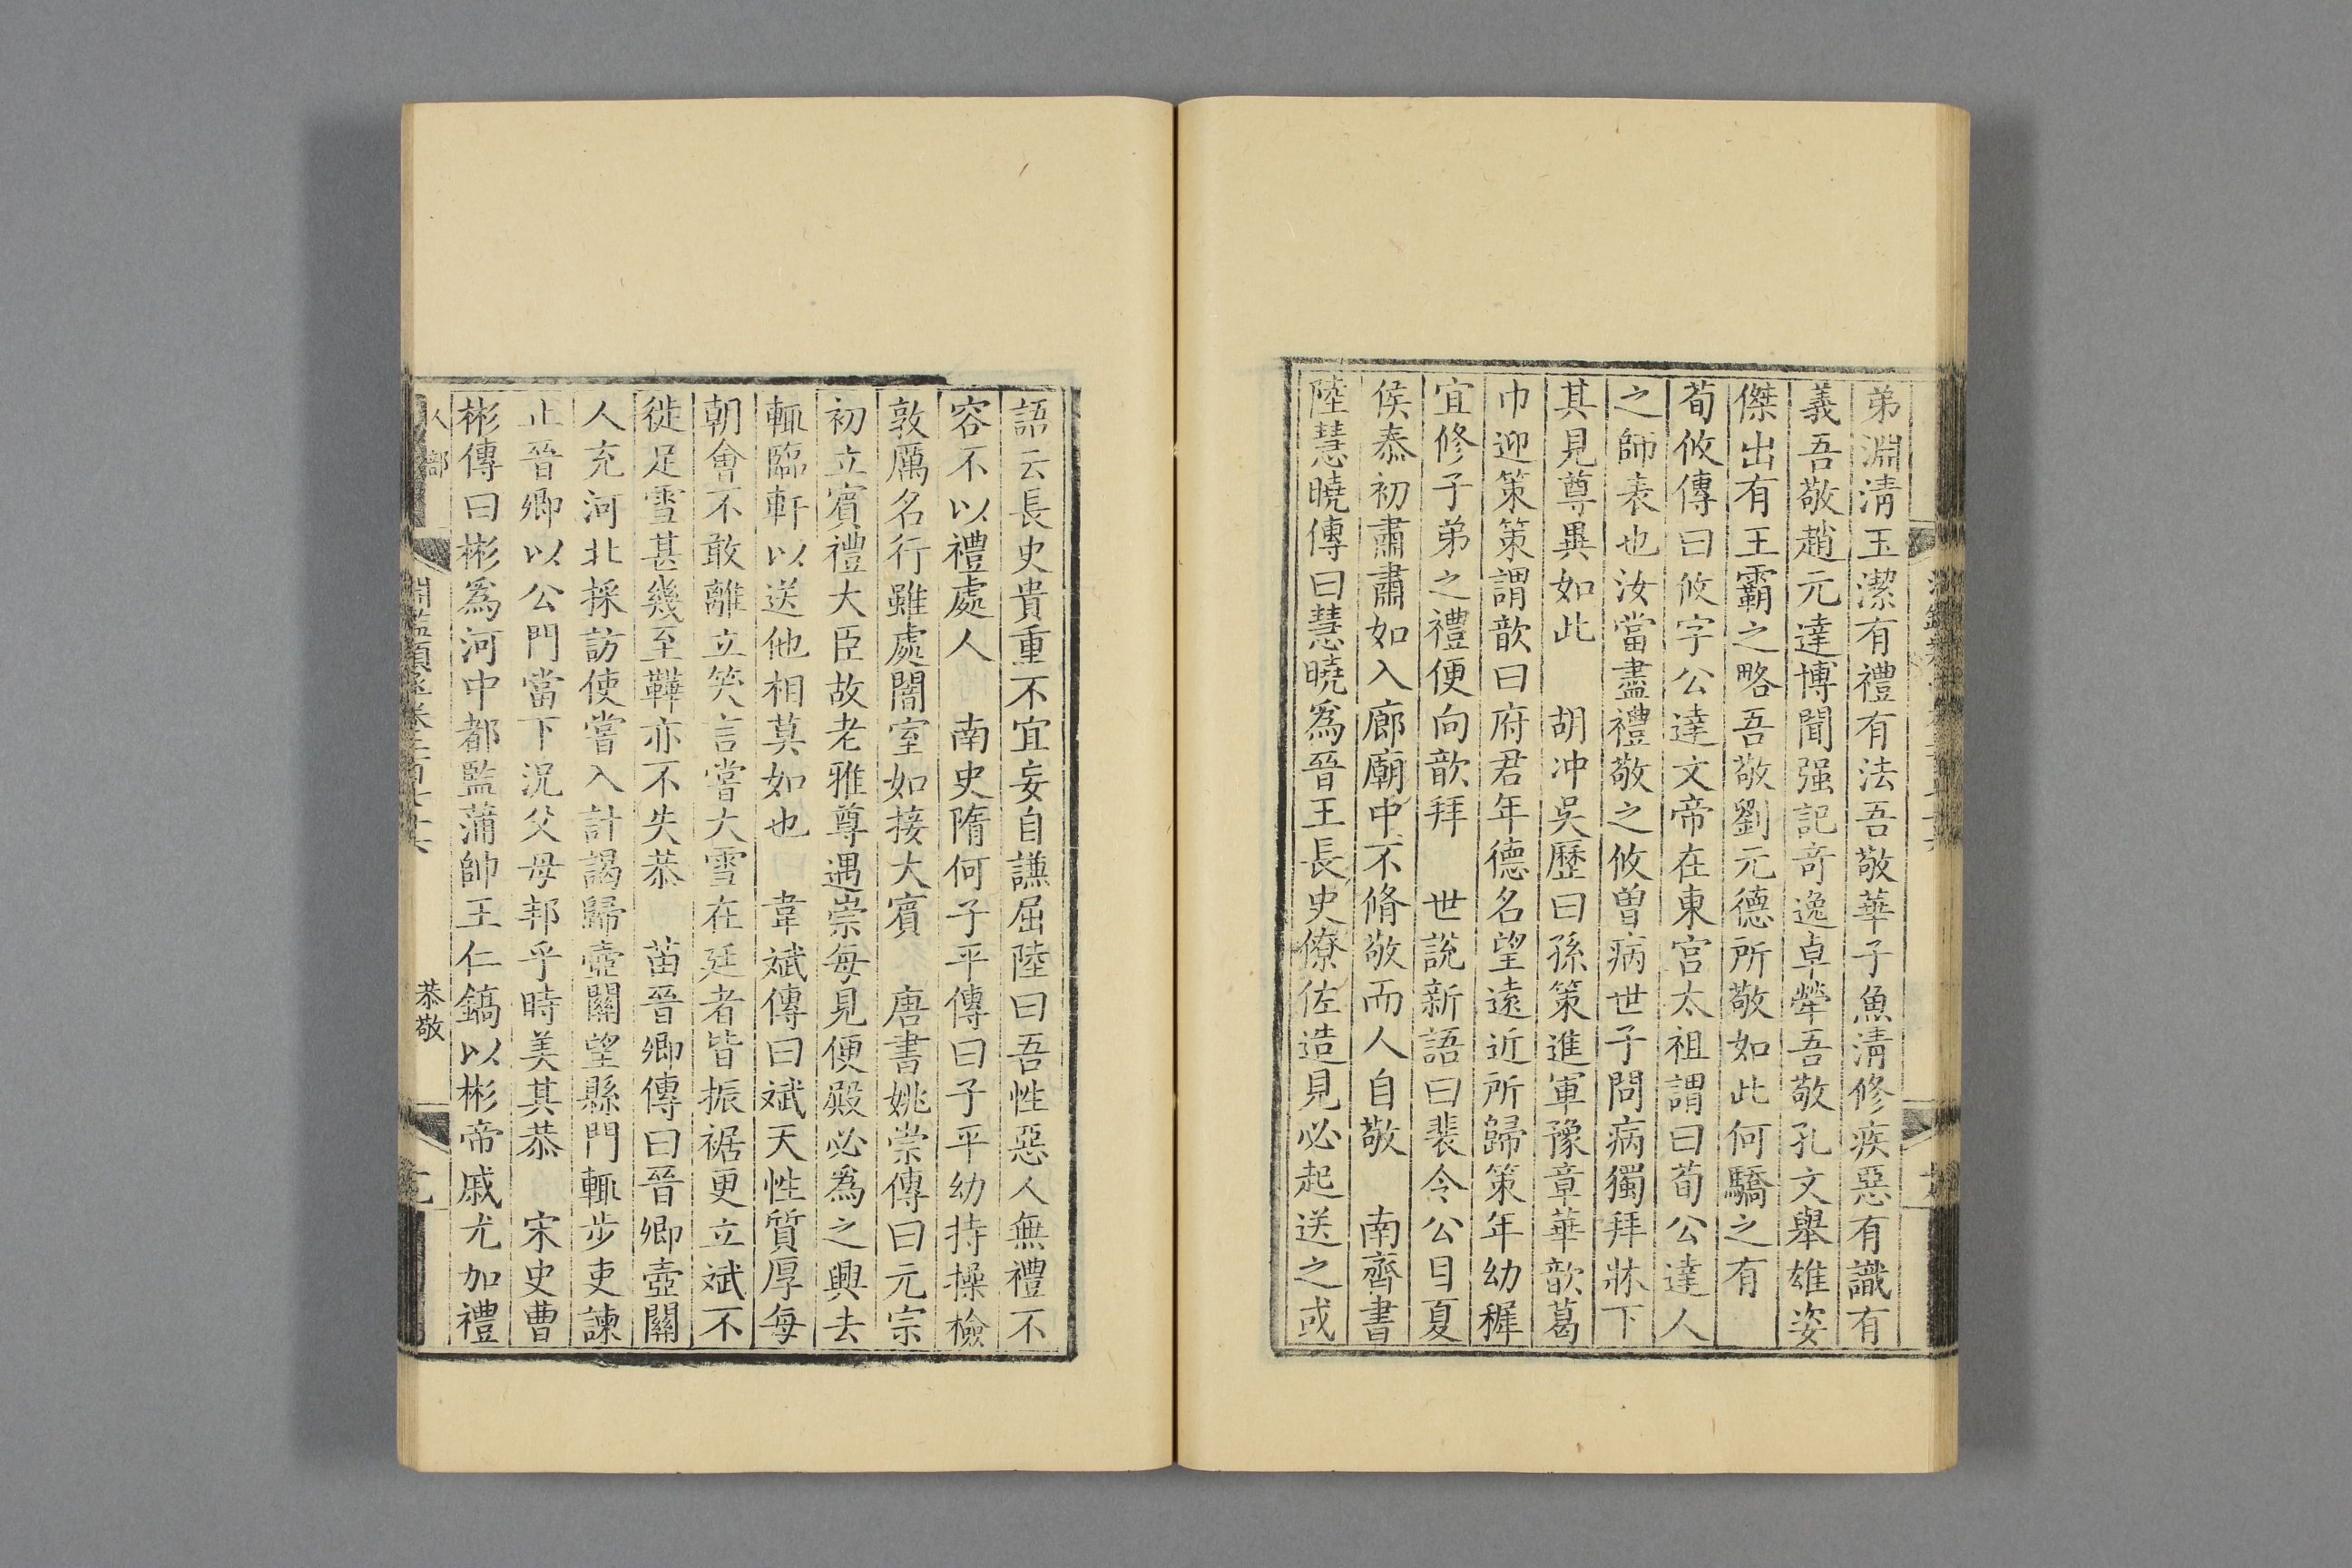 弟淵淸玉潔有禮有法吾敬華子魚淸修疾惡有識有
義吾敬趙元達博聞强記奇逸卓犖吾敬孔文舉雄姿
傑出有王霸之略吾敬劉元德所敬如此何驕之有
荀攸傳曰攸字公達文帝在東宫太祖謂曰荀公達人
之師表也汝當盡禮敬之攸曽病世子問病獨拜牀下
其見尊異如此　胡冲吳歷曰孫策進軍豫章華歆葛
巾迎策策謂歆曰府君年德名望遠近所歸策年幼穉
宜修子弟之禮便向歆拜　世說新語曰裴令公目夏
侯泰初肅肅如入廊廟中不脩敬而人自敬　南齊書
陸慧曉傳曰慧曉爲晉王長史僚佐造見必起送之或
語云長史貴重不宜妄自謙屈陸曰吾性惡人無禮不
容不以禮處人　南史隋何子平傳曰子平幼持操檢
敦厲名行雖處闇室如接大賓　唐書姚崇傳曰元宗
初立賓禮大臣故老雅尊遇崇每見便殿必爲之興去
輒臨軒以送他相莫如也　韋斌傳曰斌天性質厚每
朝會不敢離立笑言嘗大雪在廷者皆振裾更立斌不
徙足雪甚幾至鞾亦不失恭　苗晉卿傳曰晉卿壺關
人充河北採訪使嘗入計謁歸壺關望縣門輒步吏諫
止晉卿以公門當下況父母邦乎時美其恭　宋史曹
彬傳曰彬爲河中都監蒲帥王仁鎬以彬帝戚尤加禮
人部
恭敬